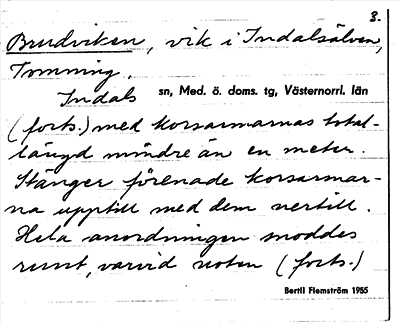 3.
Brudviken, vik i Indalsälven,
Tomming.
Indals sn, Med. ö. doms. tg, Västernorrl. län
(forts.) med korsarmarnas total-
längd mindre än en meter.
Stänger förenade korsarmar-
na upptill med dem nertill.
Hela anordningen snoddes
runt, varvid noten (forts.)
Bertil Flemström 1955